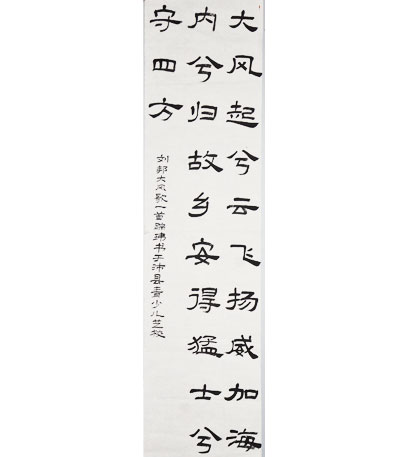 大风起兮云飞扬威加海
内兮归故乡安得猛士兮
守四方
刘邦大风歌一首 书于沛县青少儿艺校